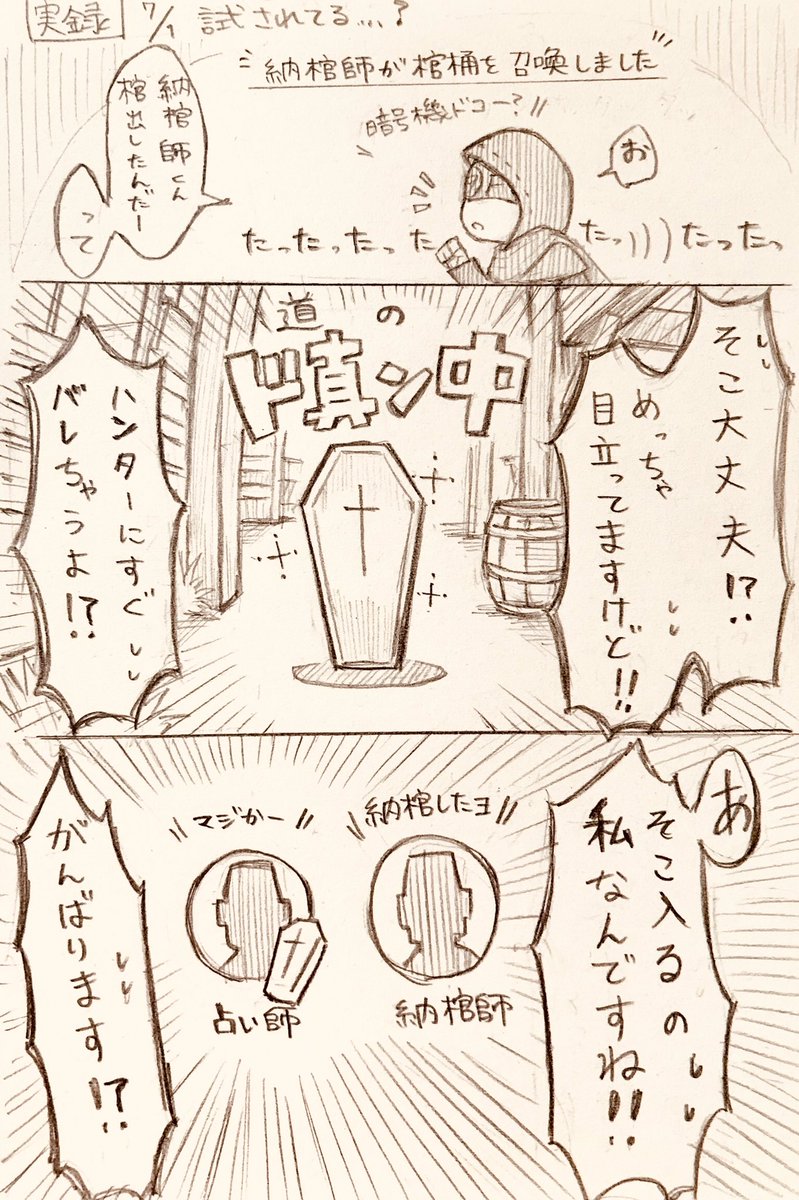 実録 7/1 試されてる…?
納棺師が棺桶を召喚しました
暗号機ドコー?
お
たったったっ
たっ たったっ
納棺師くん
棺出したんだー
って
道の
ド真ン中
そこ大丈夫!?
めっちゃ
目立ってますけど!!
ハンターにすぐ
バレちゃうよ!?
あ
そこ入るの
私なんですね!!
納棺したヨ
マジかー
納棺師
占い師
がんばります!?